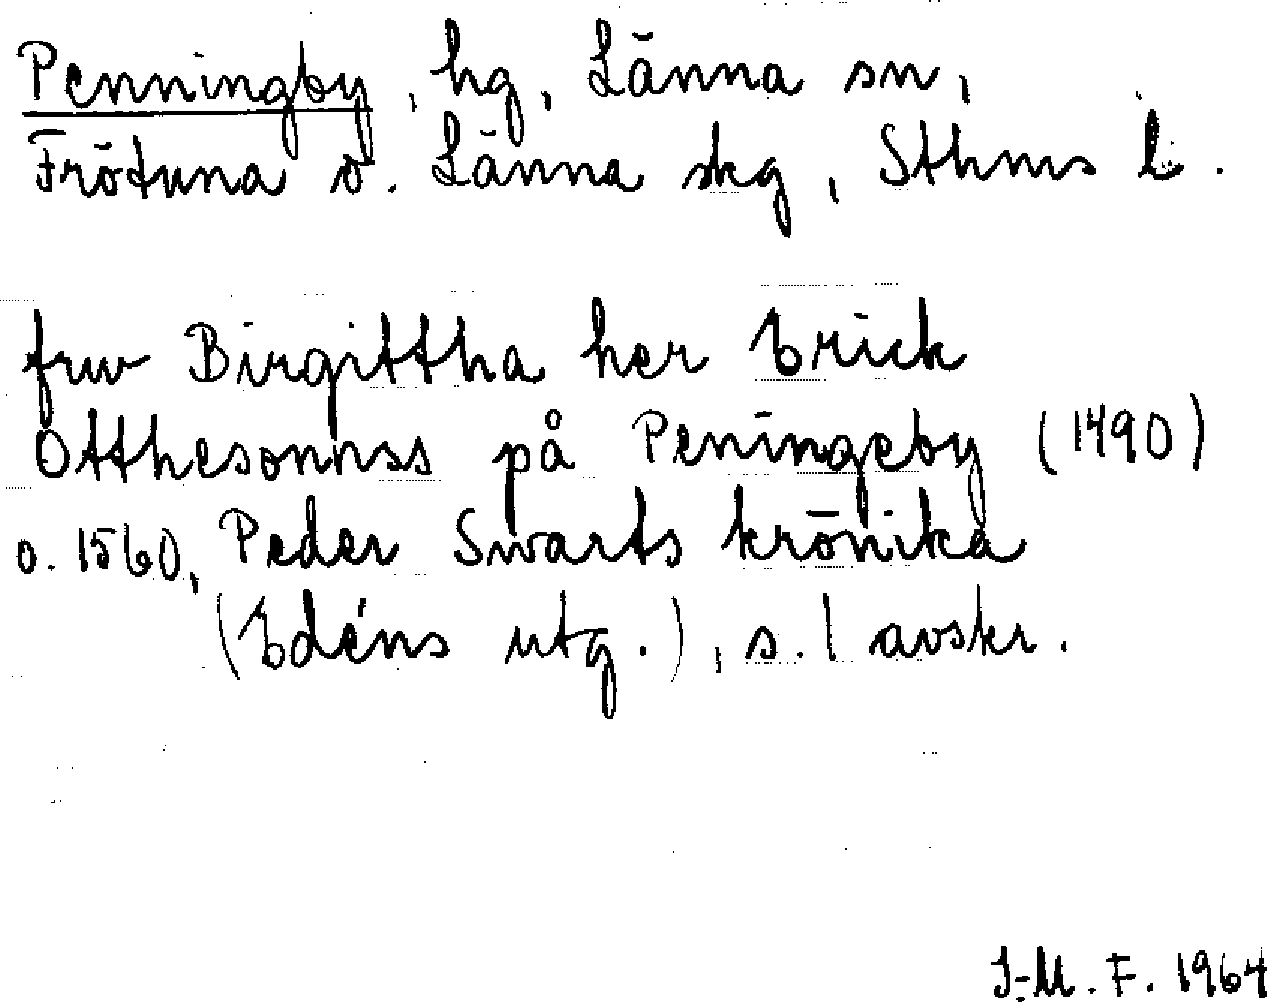 Penningby, hg, Länna sn,
Frötuna o. Länna skg, Sthms l.
fruv Birgittha her Erick
Otthesonnss på Peningeby (1490)
o. 1560, Peder Swarts krönika
(Edéns utg.), s. 1 avskr.
I-M. F. 1964